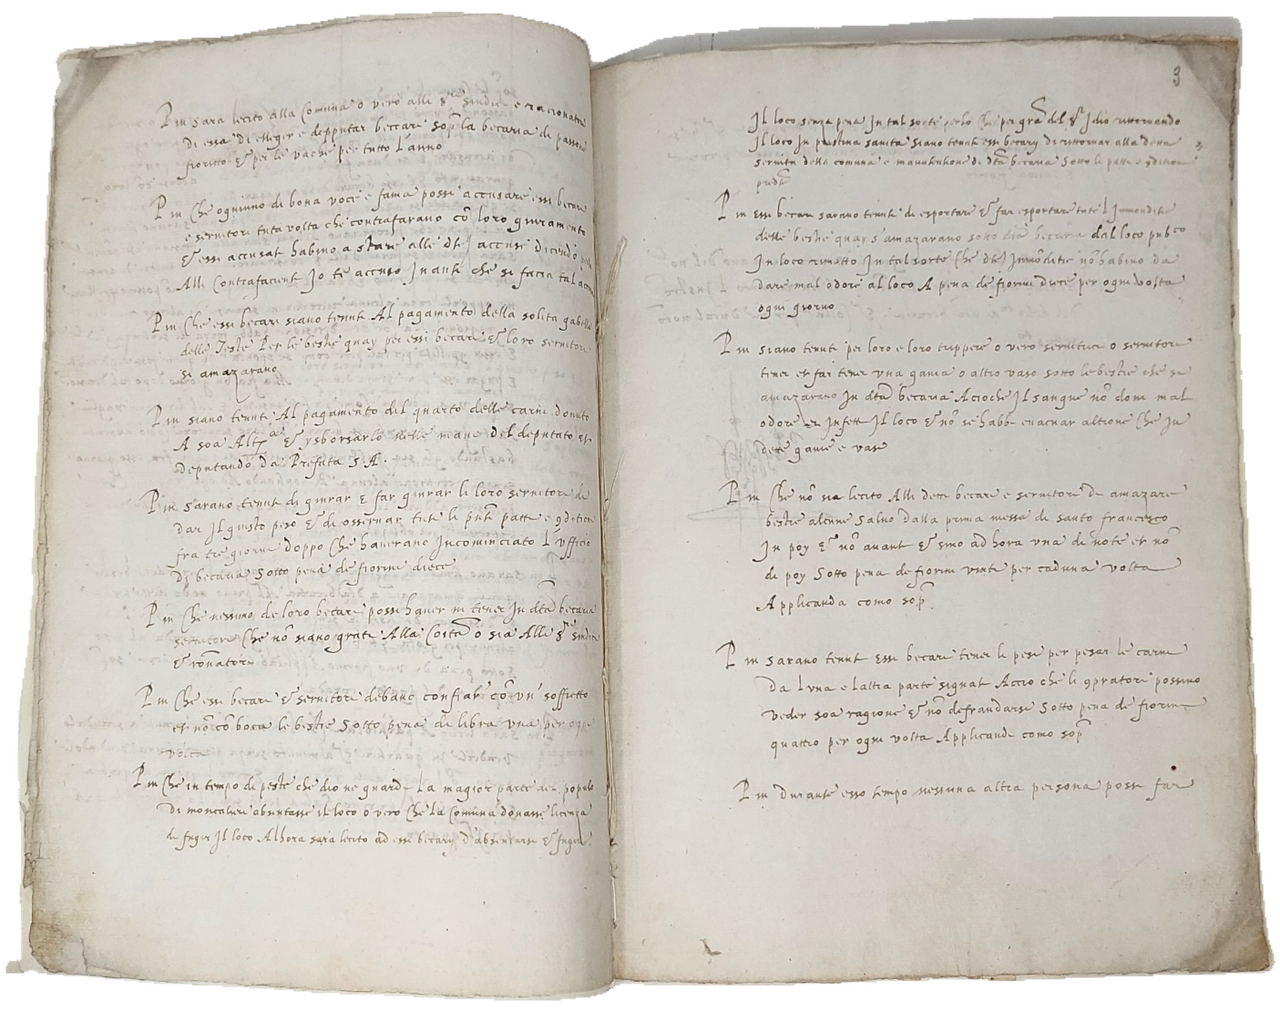 P m sara lecito alla Comuna o vero alli sri sindici e racionatori
di essa di elleger e depputar beccari sopra la becaria di passon
fiorino & per le vache per tutto l'anno
P m Che ogniuno di bona voce e fama possi accusare essi becari
e servitori tuta volta che contrafarano cō loro giuramento
& essi accusati habino a stare alle dtẽ accuse dicendo
Alli Contrafacienti Jo te accuso Inanti che si facia tal
P m Che essi becari siano tenuti Al pagamento della solita gabella
delle Teste Per le bestie quay per essi becari & loro servitori
si amazarano
P m siano tenuti Al pagamento del quarto delle carni donuto
A soa Altza & ysborsarlo nelle mane del deputato
deputando da Prefata S. A.
P m sarano tenuti di giurar & far giurar li loro servitori di
dar Il giusto peso & di osservar tute li pnti patti e 9ditioni
fra tre giorni doppo Che haverano Incominciato L'ufficio
Di becaria Sotto pena de fiorini diece
P m Che nessuno de loro becari possi haver ni tener In dtã becaria
servitore Che nō siano grati Alla Cōta o sia Alli sri sindici
& rōnatori
P m Che essi becari & servitore debano confiar cō un soffietto
et nō cō boca le bestie Sotto pena di libra una per ogni
volta
P m Che in tempo di peste che dio ne guardi La magior parte del populo
Di moncalieri absentasse il loco o vero Che la Comuna donasse licenza
di fugir Il loco Alhora sara lecito ad essi becary d'absentarse & fugir
3
Il loco senza pena In tal sorte perho Che per gra del Sr Idio rittornando
Il loco In pristina sanita siano tenuti essi becary di rittornar alla detta
servitu della comuna e manutentione di dtã becaria Sotto li patti e 9ditioni
predti
P m essi becari sarano tenuti di esportare & far esportare tute L'Immonditie
delle bestie quay s'amazarano sotto dtã becaria dal loco pubco
In loco rimotto In tal sorte Che dtẽ Immonditie nō habino da
dare mal odore al loco A pena de fiorini diece per ogni volta
ogni giorno
P m siano tenuti per loro e loro trippere o vero servitrici o servitore
tener et far tener una gavia o altro vaso sotto le bestie che se
amazarano In dtã becaria Acioche Il sangue nō doni mal
odore et Infetti Il loco & nō se habbi evacuar altrove Che In
dete gavie e vasi
P m Che nō sia lecito Alli detti becari e servitore De amazare
bestie alcune Salvo dalla prima messa di santo francesco
In poy & nō avanti & sino ad hora una di note et nō
di poy Sotto pena de fiorini vinti per caduna volta
Applicanda como sopa
P m sarano tenuti essi becari tener li pesi per pesar le carni
Da l'una e l'altra parte signati Accio che li 9pratori possino
veder soa ragione & nō defraudarse Sotto pena de fiorini
quattro per ogni volta Applicandi como sopa
P m Durante esso tempo nessuna altra persona possi far